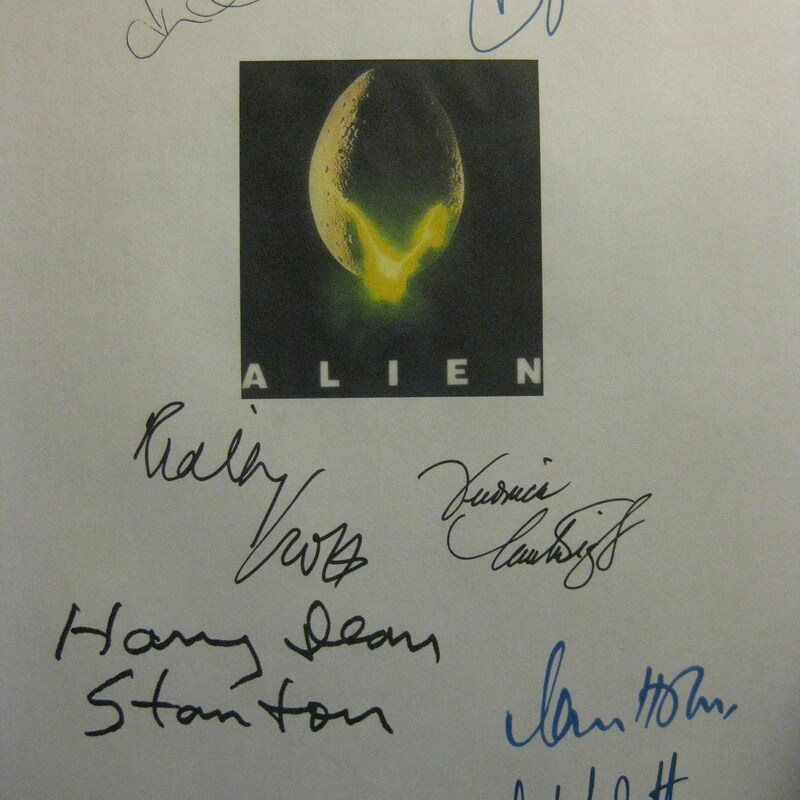 ALIEN
Ridley
Scott
Veronica
Cartwright
Harry Dean
Stanton
Ian Holm